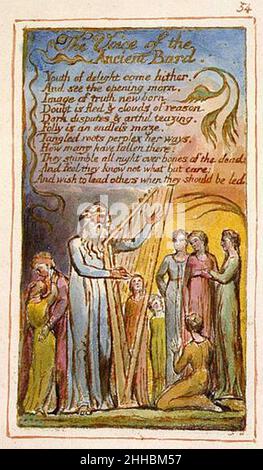 54
The Voice of the
Ancient Bard.
Youth of delight come hither.
And see the opening morn,
Image of truth new born.
Doubt is fled & clouds of reason.
Dark disputes & artful teazing.
Folly is an endless maze.
Tangled roots perplex her ways.
How many have fallen there!
They stumble all night over bones of the dead:
And feel they know not what but care:
And wish to lead others when they should be led.
alamy
Image ID: 2HHBM57
www.alamy.com